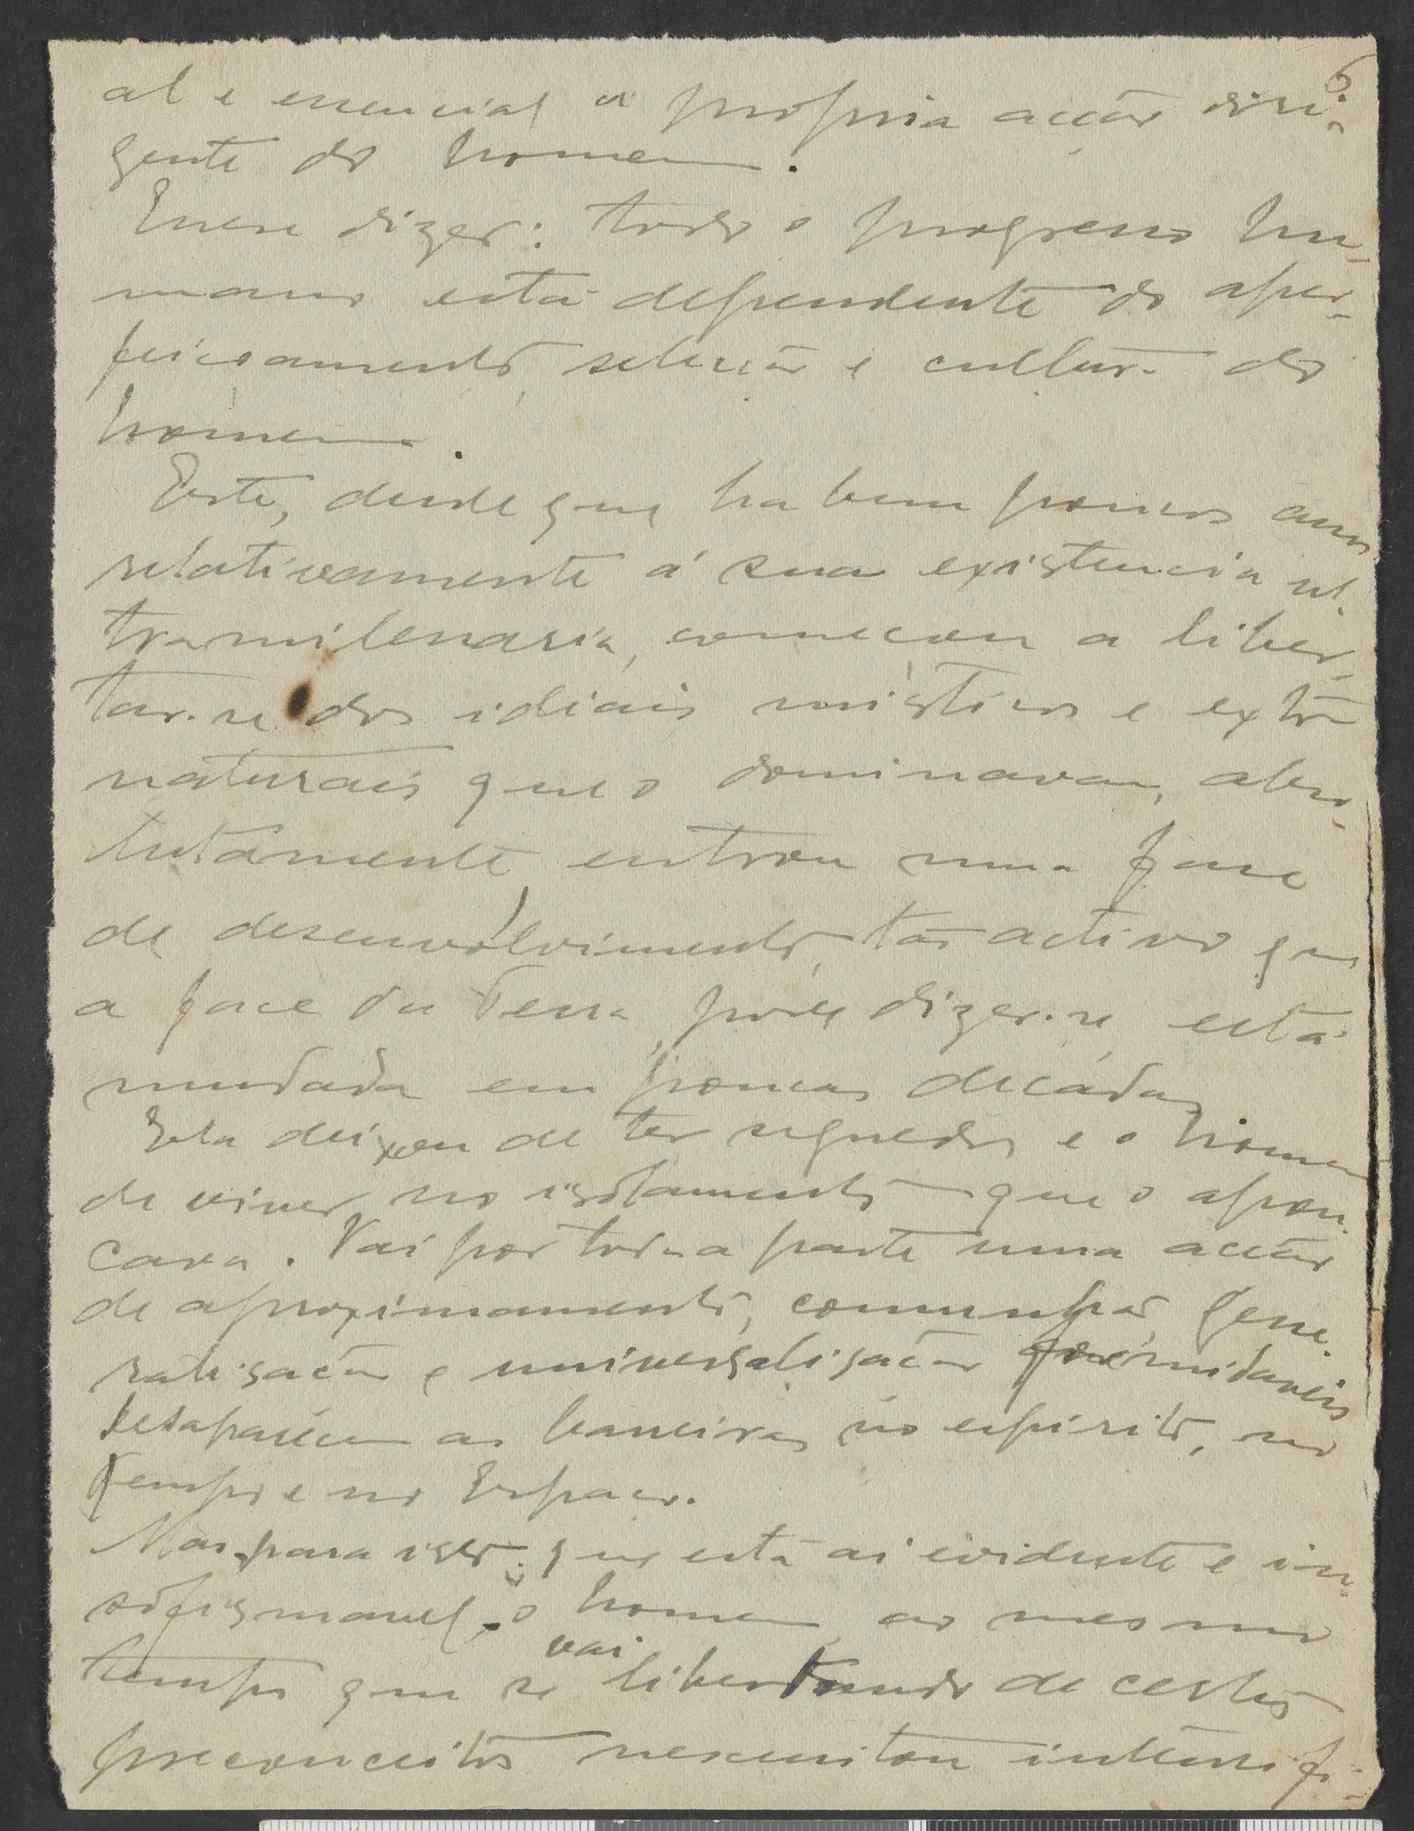 6.
al e essencial a propria acção diri-
gente do homem.
Quere dizer: todo o progresso hu-
mano está dependente do aper-
feiçoamento, seleção e cultura do
homem.
Este, desde que ha bem poucos anos
relativamente á sua existencia ul-
tramilenaria, começou a liber-
tar-se dos idiais misticos e extra
naturais que o dominavam, abso-
lutamente, entrou numa fase
de desenvolvimento, tão activo que
a face da Terra, póde dizer-se, está
mudada em poucas décadas.
Esta deixou de ter segredos e o homem
de viver no isolamento que o apou-
cava. Vai por toda a parte uma acção
de aproximamento, comunhão, gene-
ralisação e universalisação formidaveis
Desaparecem as barreiras no espirito, no
Tempo e no Espaço.
Mas, para isso, que está ai evidente e in-
sofismavel, o homem, ao mesmo
tempo que se vai libertando de certos
preconceitos necessitou intensifi-